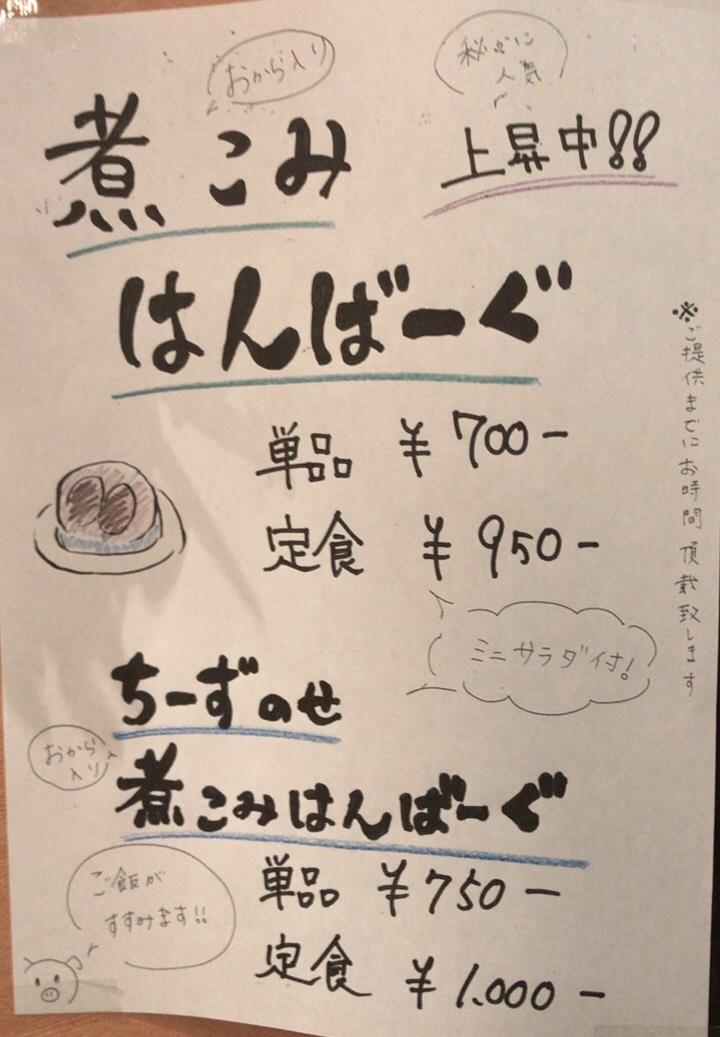 おから入り
秘かに
人気
煮こみ
上昇中!!
はんばーぐ
単品 ¥700-
定食 ¥950-
ミニサラダ付!
※ご提供までにお時間頂戴致します
ちーずのせ
おから
入り
煮こみはんばーぐ
単品 ¥750-
定食 ¥1.000-
ご飯が
すすみます!!